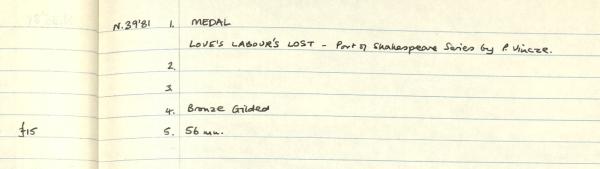 N.39'81 1. MEDAL
LOVE'S LABOUR'S LOST - Part of Shakespeare Series by P. Vincze.
2.
3.
4. Bronze Gilded
£15 5. 56 mm.